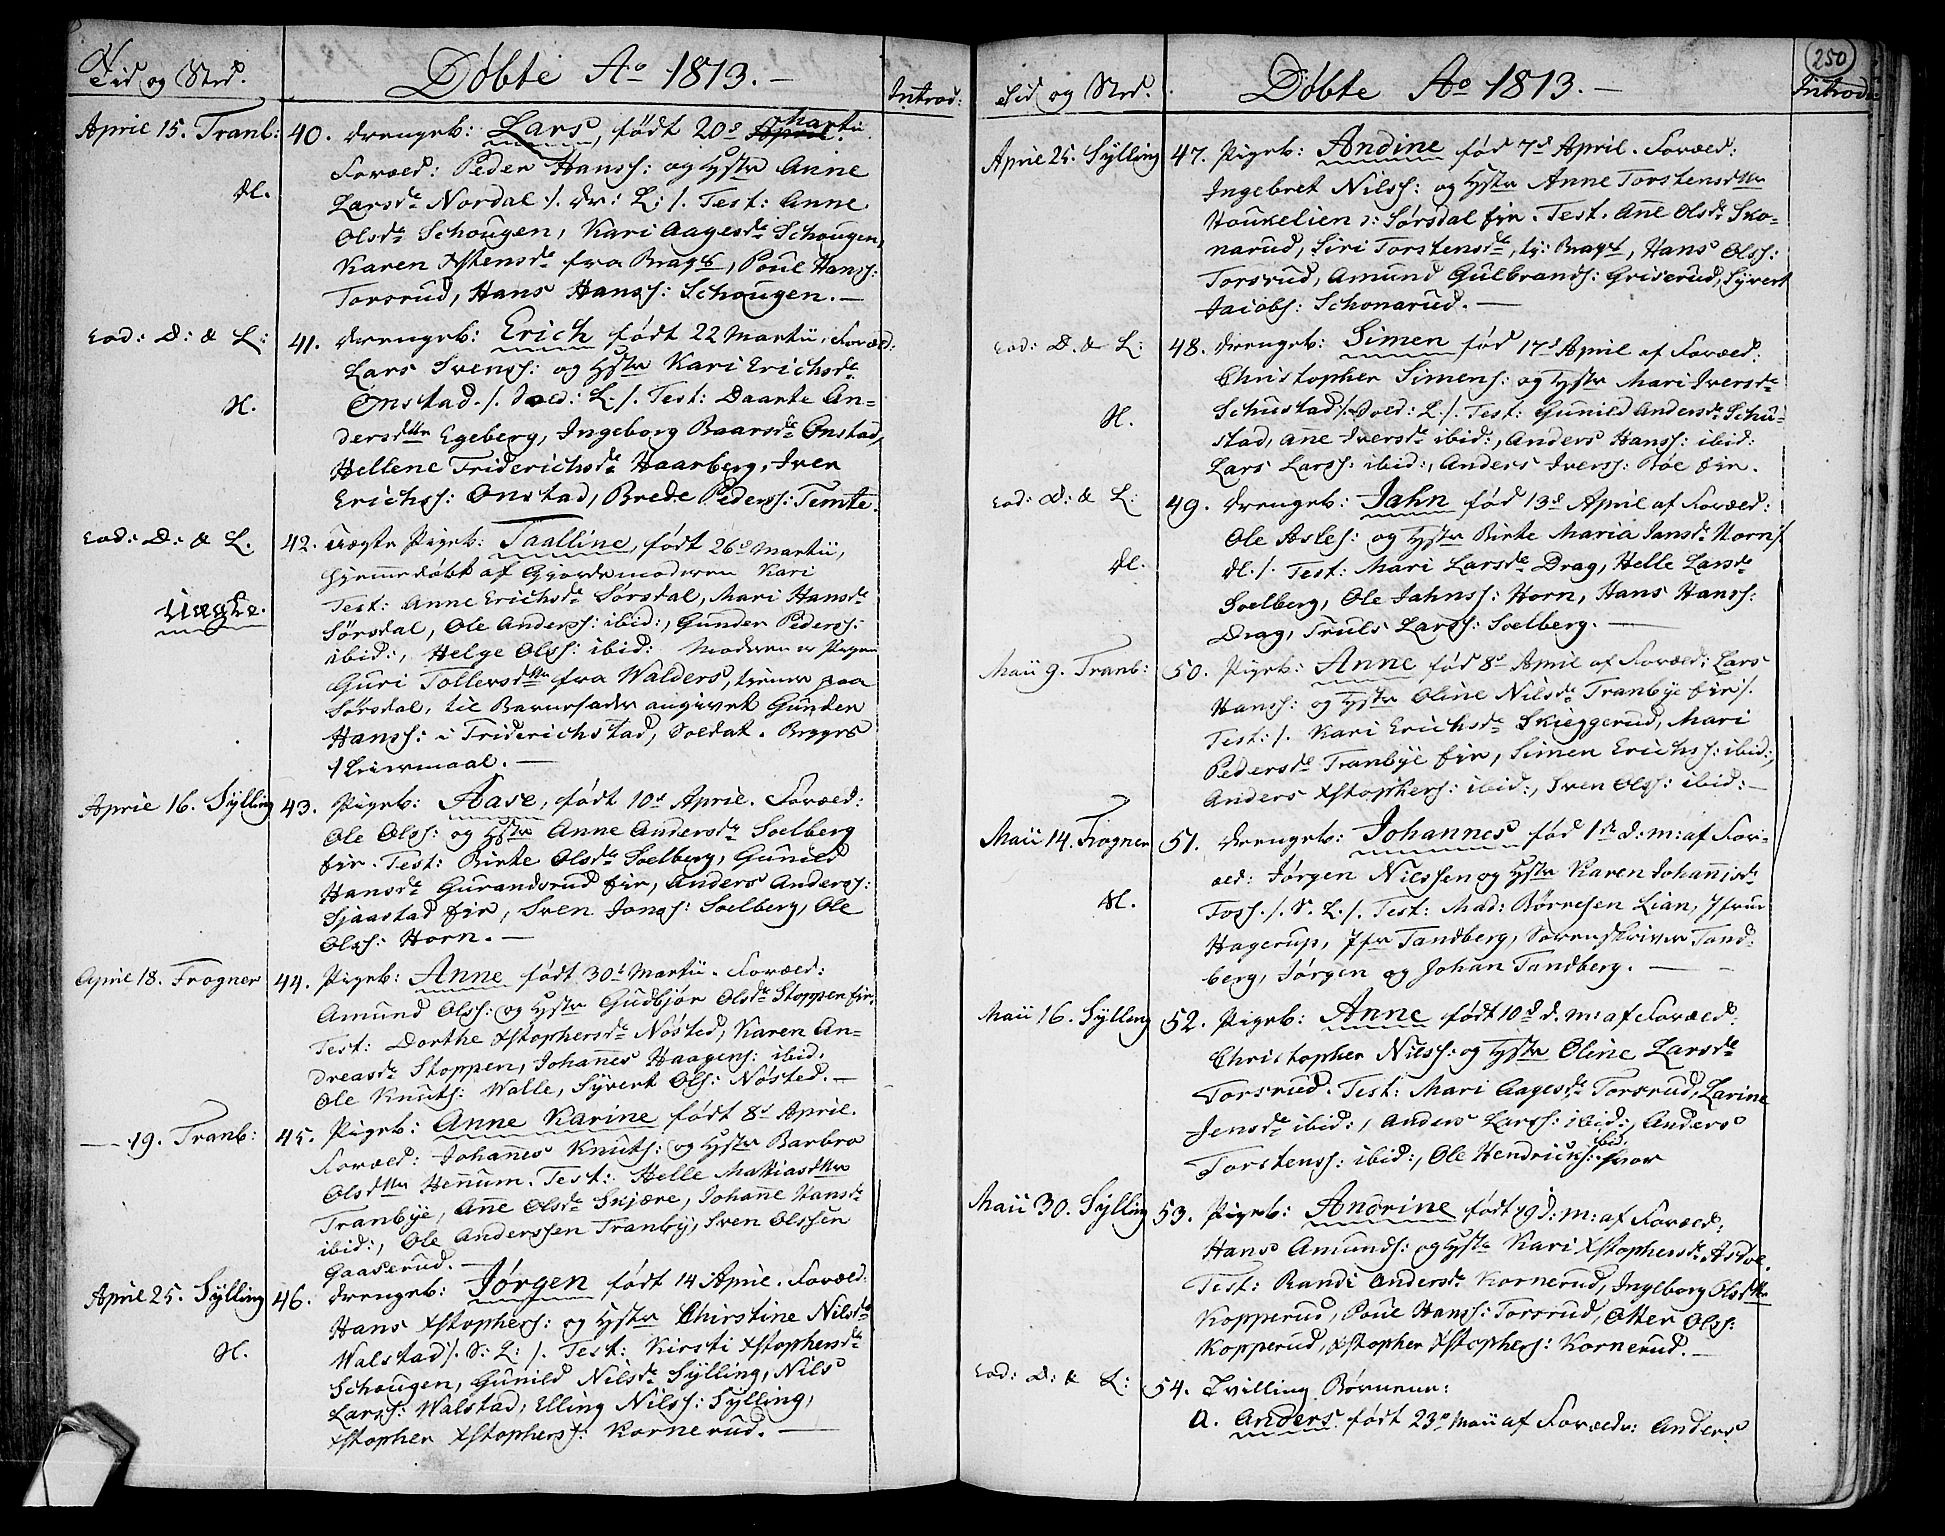 Tid og Sted.
Døbte Ao 1813. —
Introd:
April 15. Tranb:
40. Drengeb: Lars, født 20d April Martii
Foræld: Peder Hanss: og Hstr Anne
Larsdr Nordal ·/. Dr: L: /. Test: Anne
Olsdr Schougen, Kari Aagesdr Schougen,
Karen Xstensdr fra Brags, Poul Hanss:
Torsrud, Hans Hanss: Schougen. —
Eod: D: & L:
41. Drengeb: Erich født 22 Martii, Foræld:
Lars Svenss: og Hstr Kari Erichsdr
Onstad ./. Sold: L./. Test: Daarte An-
dersdttr Egeberg, Ingeborg Baarsdr Onstad,
Hellene Friderichsdr Haarberg, Iver
Erichss: Onstad, Brede Pederss: Temte.
Eod: D: & L.
Uægte.
42. Uægte Pigeb: Taalline, født 26d Martii,
hjemmedøbt af Gjordemoderen Kari
Test: Anne Erichsdr Sørsdal, Mari Hansdr
Sørsdal, Ole Anderss: ibid:, Gunder Pederss:
ibid:, Helge Olss: ibid: Moderen er Pigen
Guri Tollersdttr fra Walders, tjener paa
Sørsdal, til Barnefader angivet Gunder
Hanss: i Friderichstad, Soldat. Begges
1 Leiermaal. —
April 16. Sylling
43. Pigeb: Aase, født 10d April. Foræld:
Ole Olss: og Hstr Anne Andersdr Soelberg
eir. Test: Birte Olsdr Soelberg, Gunild
Hansdr Gurandsrud eir, Anders Anderss:
Sjaastad eir, Sven Jonss: Soelberg, Ole
Olss: Horn. —
April 18. Frogner
44. Pigeb: Anne født 30t Martii. Foræld:
Amund Olss: og Hstr Gudbjør Olsdr Stoppen eir,
Test: Dorthe Xstophersdr Nøsted, Karen An-
dreasdr Stoppen, Johannes Haagens: ibid.
Ole Knuts: Walle, Syvert Ols: Nøsted. —
— 19. Tranb:
45. Pigeb: Anne Karine født 8d April.
Foræld: Johanes Knuts: og Hstr Barbro
Olsdttr Hennum. Test: Helle Mathiasdttr
Tranbye, Anne Olsdr Skjære, Johanne Hansdr
ibid:, Ole Anderssen Tranby, Sven Olssen
Gaaserud. —
April 25. Sylling
46. Drengeb: Jørgen født 14 April. Foræld:
Hans Xstophers: og Hstr Chirstine Nilsdr
Walstad /. S: L: /. Test: Kirsti Xstophersdr
Schougen, Gunild Nilsdr Sylling, Nils
Larss: Walstad, Elling Nilss: Sylling,
Xstopher Xstophers: Kornerud. —
250
Tid og Sted.
Døbte Ao 1813. —
Introd:
April 25. Sylling
47. Pigeb: Andine fød 7d April. Foræld:
Ingebret Nilss: og Hstr Anne Torstensdttr
Houkelien ɔ: Sørsdal eir. Test. Anne Olsdr Sko-
narud, Siri Torstensdr, tj: Brags, Hans Olss:
Torsrud, Amund Gulbrands: Griserud, Syvert
Jacobs: Schonarud. —
Eod: D. & L:
48. Drengeb: Simen fød 17d April af Foræld:
Christopher Simens: og Hstr Mari Iversdr
Schustad /. Sold: L /. Test: Gunild Andersdr Schu-
stad, Anne Iversdr ibid:, Anders Hanss: ibid:
Lars Larss: ibid:, Anders Iverss: Bøe eir.
Eod: D: & L:
49. Drengeb: Jahn fød 13d April af Foræld:
Ole Asles: og Hstr Birte Maria Jansdr Horn /.
Test: Mari Larsdr Drag, Helle Larsdr
Soelberg, Ole Jahnss: Horn, Hans Hanss:
Drag, Truls Larss: Soelberg. —
Maii 9. Tranb:
50. Pigeb: Anne fød 8d April af Foræld: Lars
Hanss: og Hstr Oline Nilsdr Tranbye eir /.
Test: /. Kari Erichsdr Skieggerud, Mari
Pedersdr Tranbye eir, Simen Erichss: ibid:,
Anders Xstophers: ibid:, Sven Olss: ibid: —
Maii 14. Frogner
51. Drengeb: Johannes fød 1st d: m: af For-
æld: Jørgen Nilssen og Hstr Karen Johannisdr
Foss ./. S. L. /. Test: Mad: Børresen Lian, Jfrue
Hagerup, Jfr Tandberg, Sorenskriver Tand-
berg, Jørgen og Johan Tandberg. —
Maii 16. Sylling
52. Pigeb: Anne født 10d d. m: af Foræld:
Christopher Nilss: og Hstr Oline Larsdr
Torsrud. Test: Mari Aagesdr Torsrud, Larine
Jensdr ibid:, Anders Larss: ibid:, Anders
Torstenss: ibid:, Ole Hendrichs: ibid.
Maii 30. Sylling
53. Pigeb: Andrine født 19 d: m: af Foræld:
Hans Amunds: og Hstr Kari Xstophersdr Asdøl.
Test: Randi Andersdr Kornerud, Ingeborg Olsdttr
Kopperud, Poul Hanss: Torsrud, Otter Olss:
Kopperud, Xstopher Xstophers: Kornerud. —
Eod: D: & L:
54. Tvilling Børnene:
a. Anders født 23d Maii af Foræld: Anders